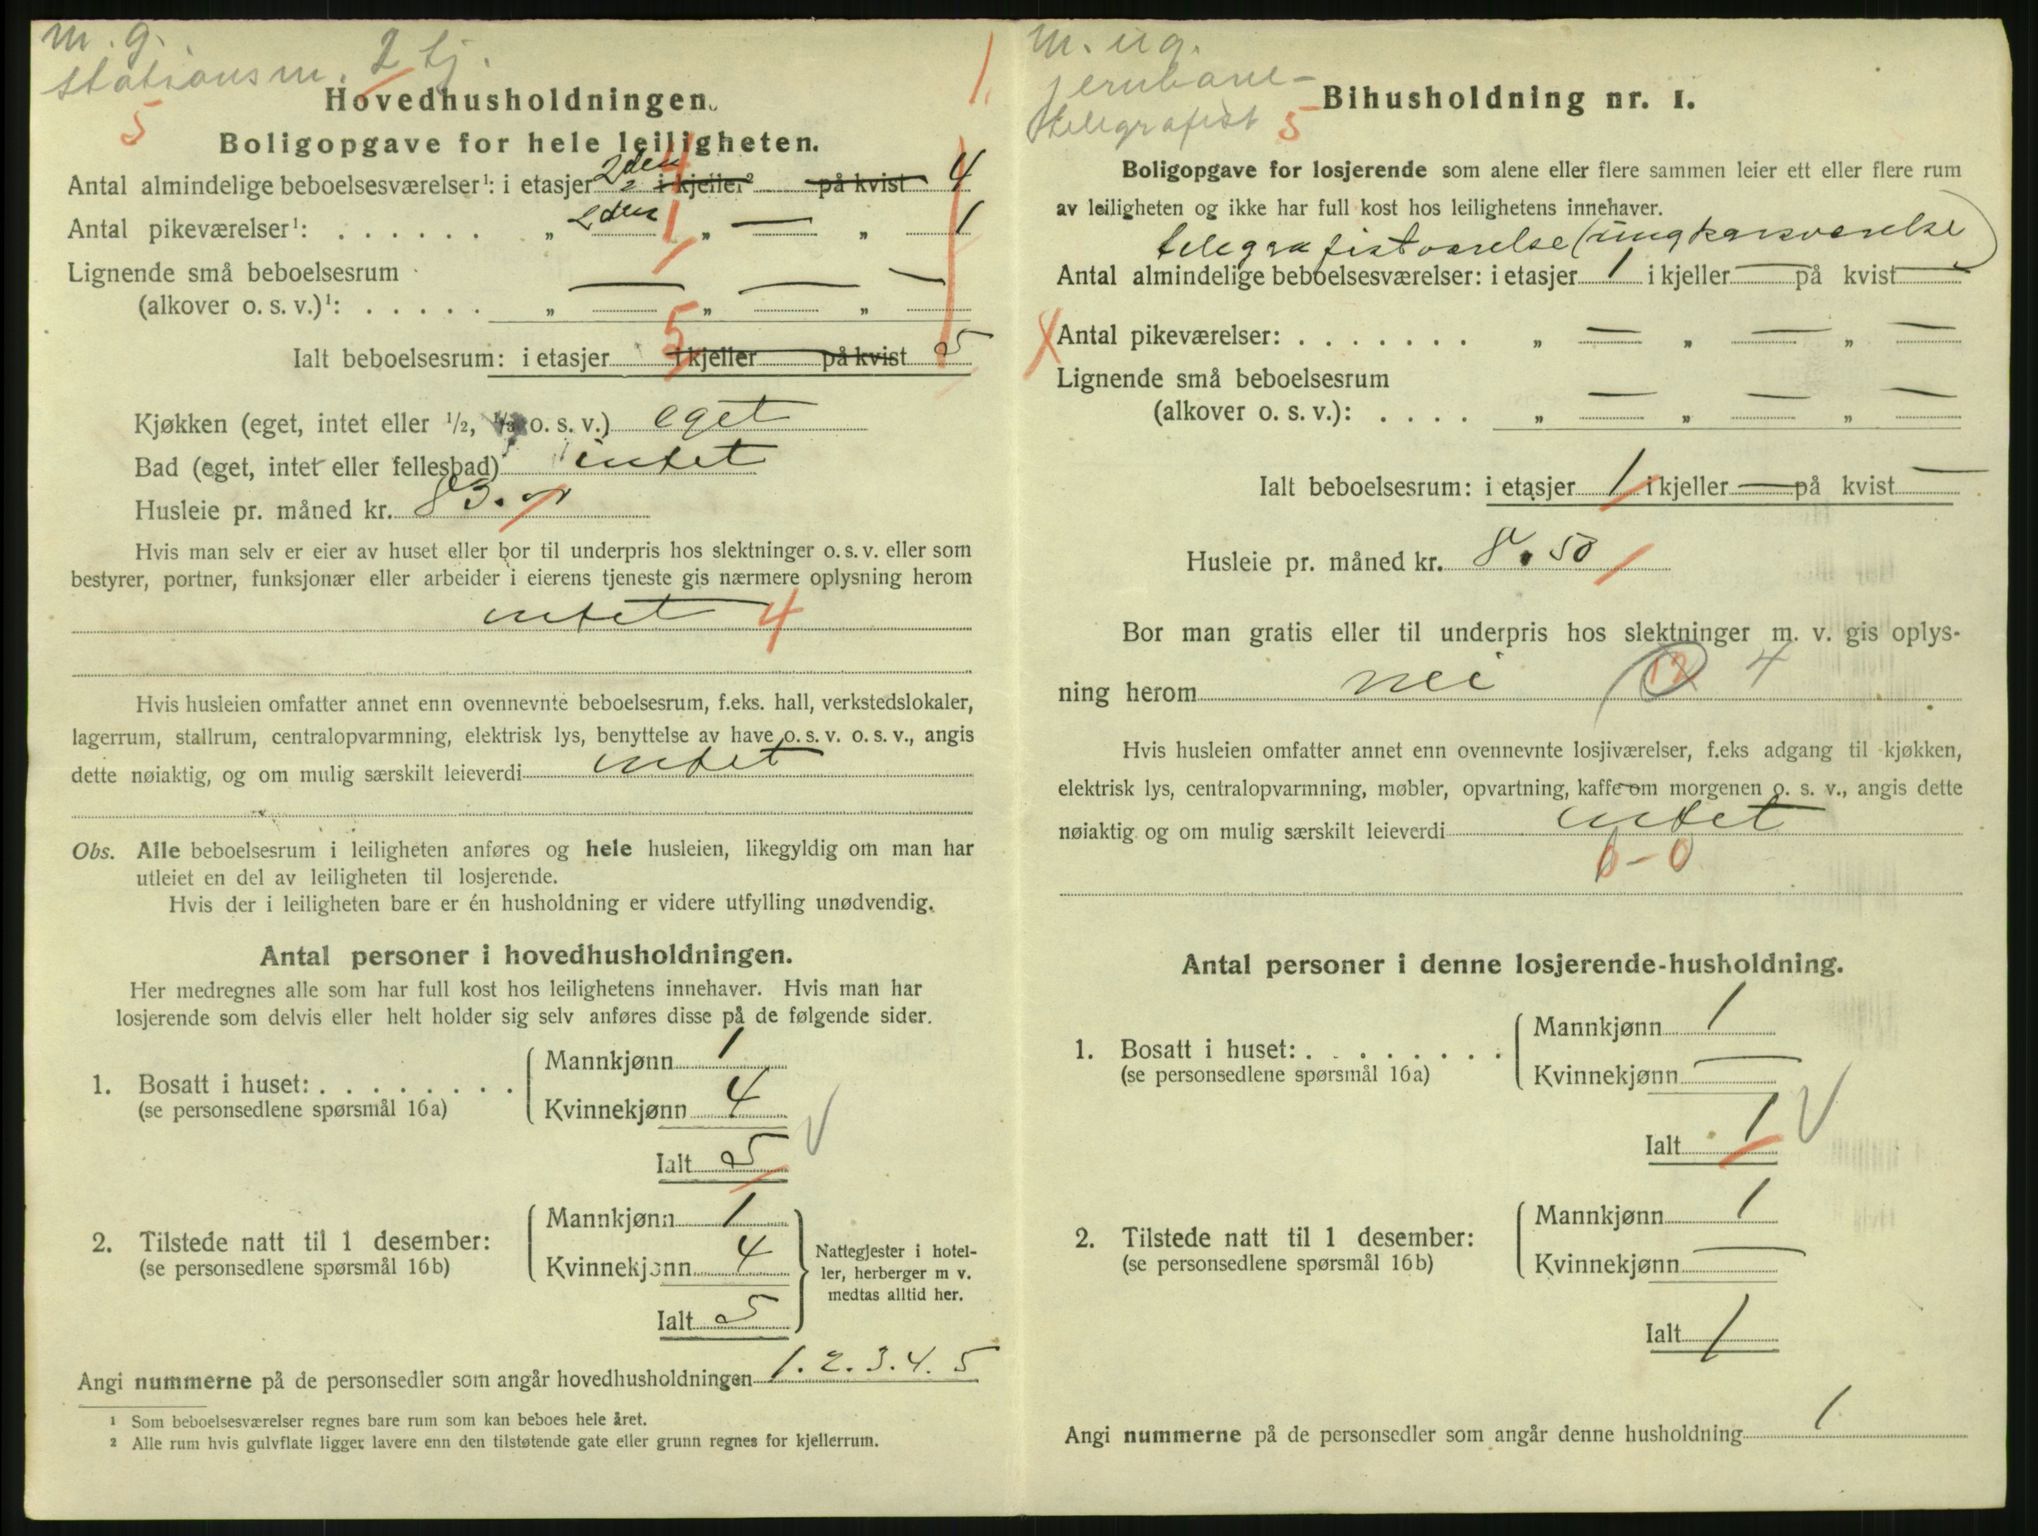 m. g.
stationsm. 2 tj.
5
1.
Hovedhusholdningen.
Boligopgave for hele leiligheten.
Antal almindelige beboelsesværelser¹: i etasjer 2den i kjeller² på kvist 4
4
Antal pikeværelser¹: . . . . . . „ 2den 1 „ — „ 1
Lignende små beboelsesrum
(alkover o. s. v.)¹: . . . . . „ — „ — „ —
5
Ialt beboelsesrum: i etasjer i kjeller på kvist 5
Kjøkken (eget, intet eller ½, ⅓ o. s. v.) eget
Bad (eget, intet eller fellesbad) intet
Husleie pr. måned kr. 83.
Hvis man selv er eier av huset eller bor til underpris hos slektninger o. s. v. eller som
bestyrer, portner, funksjonær eller arbeider i eierens tjeneste gis nærmere oplysning herom
intet 4
Hvis husleien omfatter annet enn ovennevnte beboelsesrum, f.eks. hall, verkstedslokaler,
lagerrum, stallrum, centralopvarmning, elektrisk lys, benyttelse av have o. s. v. o. s. v., angis
dette nøiaktig, og om mulig særskilt leieverdi intet
Obs. Alle beboelsesrum i leiligheten anføres og hele husleien, likegyldig om man har
utleiet en del av leiligheten til losjerende.
Hvis der i leiligheten bare er én husholdning er videre utfylling unødvendig.
Antal personer i hovedhusholdningen.
Her medregnes alle som har full kost hos leilighetens innehaver. Hvis man har
losjerende som delvis eller helt holder sig selv anføres disse på de følgende sider.
Mannkjønn 1
1. Bosatt i huset: . . . . . . . .
(se personsedlene spørsmål 16a)
Kvinnekjønn 4
Ialt 5
Mannkjønn 1
2. Tilstede natt til 1 desember:
(se personsedlene spørsmål 16b)
Kvinnekjønn 4
Ialt 5
Nattegjester i hotel-
ler, herberger m v.
medtas alltid her.
Angi nummerne på de personsedler som angår hovedhusholdningen 1. 2. 3. 4. 5
¹ Som beboelsesværelser regnes bare rum som kan beboes hele året.
² Alle rum hvis gulvflate ligger lavere enn den tilstøtende gate eller grunn regnes for kjellerrum.
m. ug.
jernbane-
telegrafist 5
Bihusholdning nr. 1.
Boligopgave for losjerende som alene eller flere sammen leier ett eller flere rum
av leiligheten og ikke har full kost hos leilighetens innehaver.
telegrafistværelse (ungkarsværelse)
Antal almindelige beboelsesværelser: i etasjer 1 i kjeller — på kvist —
Antal pikeværelser: . . . . . . . „ — „ — „ —
Lignende små beboelsesrum
(alkover o. s. v.): . . . . „ — „ — „ —
Ialt beboelsesrum: i etasjer 1 i kjeller — på kvist —
Husleie pr. måned kr. 8.50
Bor man gratis eller til underpris hos slektninger m. v. gis oplys-
ning herom nei 4
Hvis husleien omfatter annet enn ovennevnte losjiværelser, f.eks adgang til kjøkken,
elektrisk lys, centralopvarmning, møbler, opvartning, kaffe om morgenen o. s. v., angis dette
nøiaktig og om mulig særskilt leieverdi intet
0-0
Antal personer i denne losjerende-husholdning.
Mannkjønn 1
1. Bosatt i huset: . . . . . . . .
(se personsedlene spørsmål 16a)
Kvinnekjønn —
Ialt 1
Mannkjønn 1
2. Tilstede natt til 1 desember:
(se personsedlene spørsmål 16b)
Kvinnekjønn —
Ialt 1
Angi nummerne på de personsedler som angår denne husholdning 1